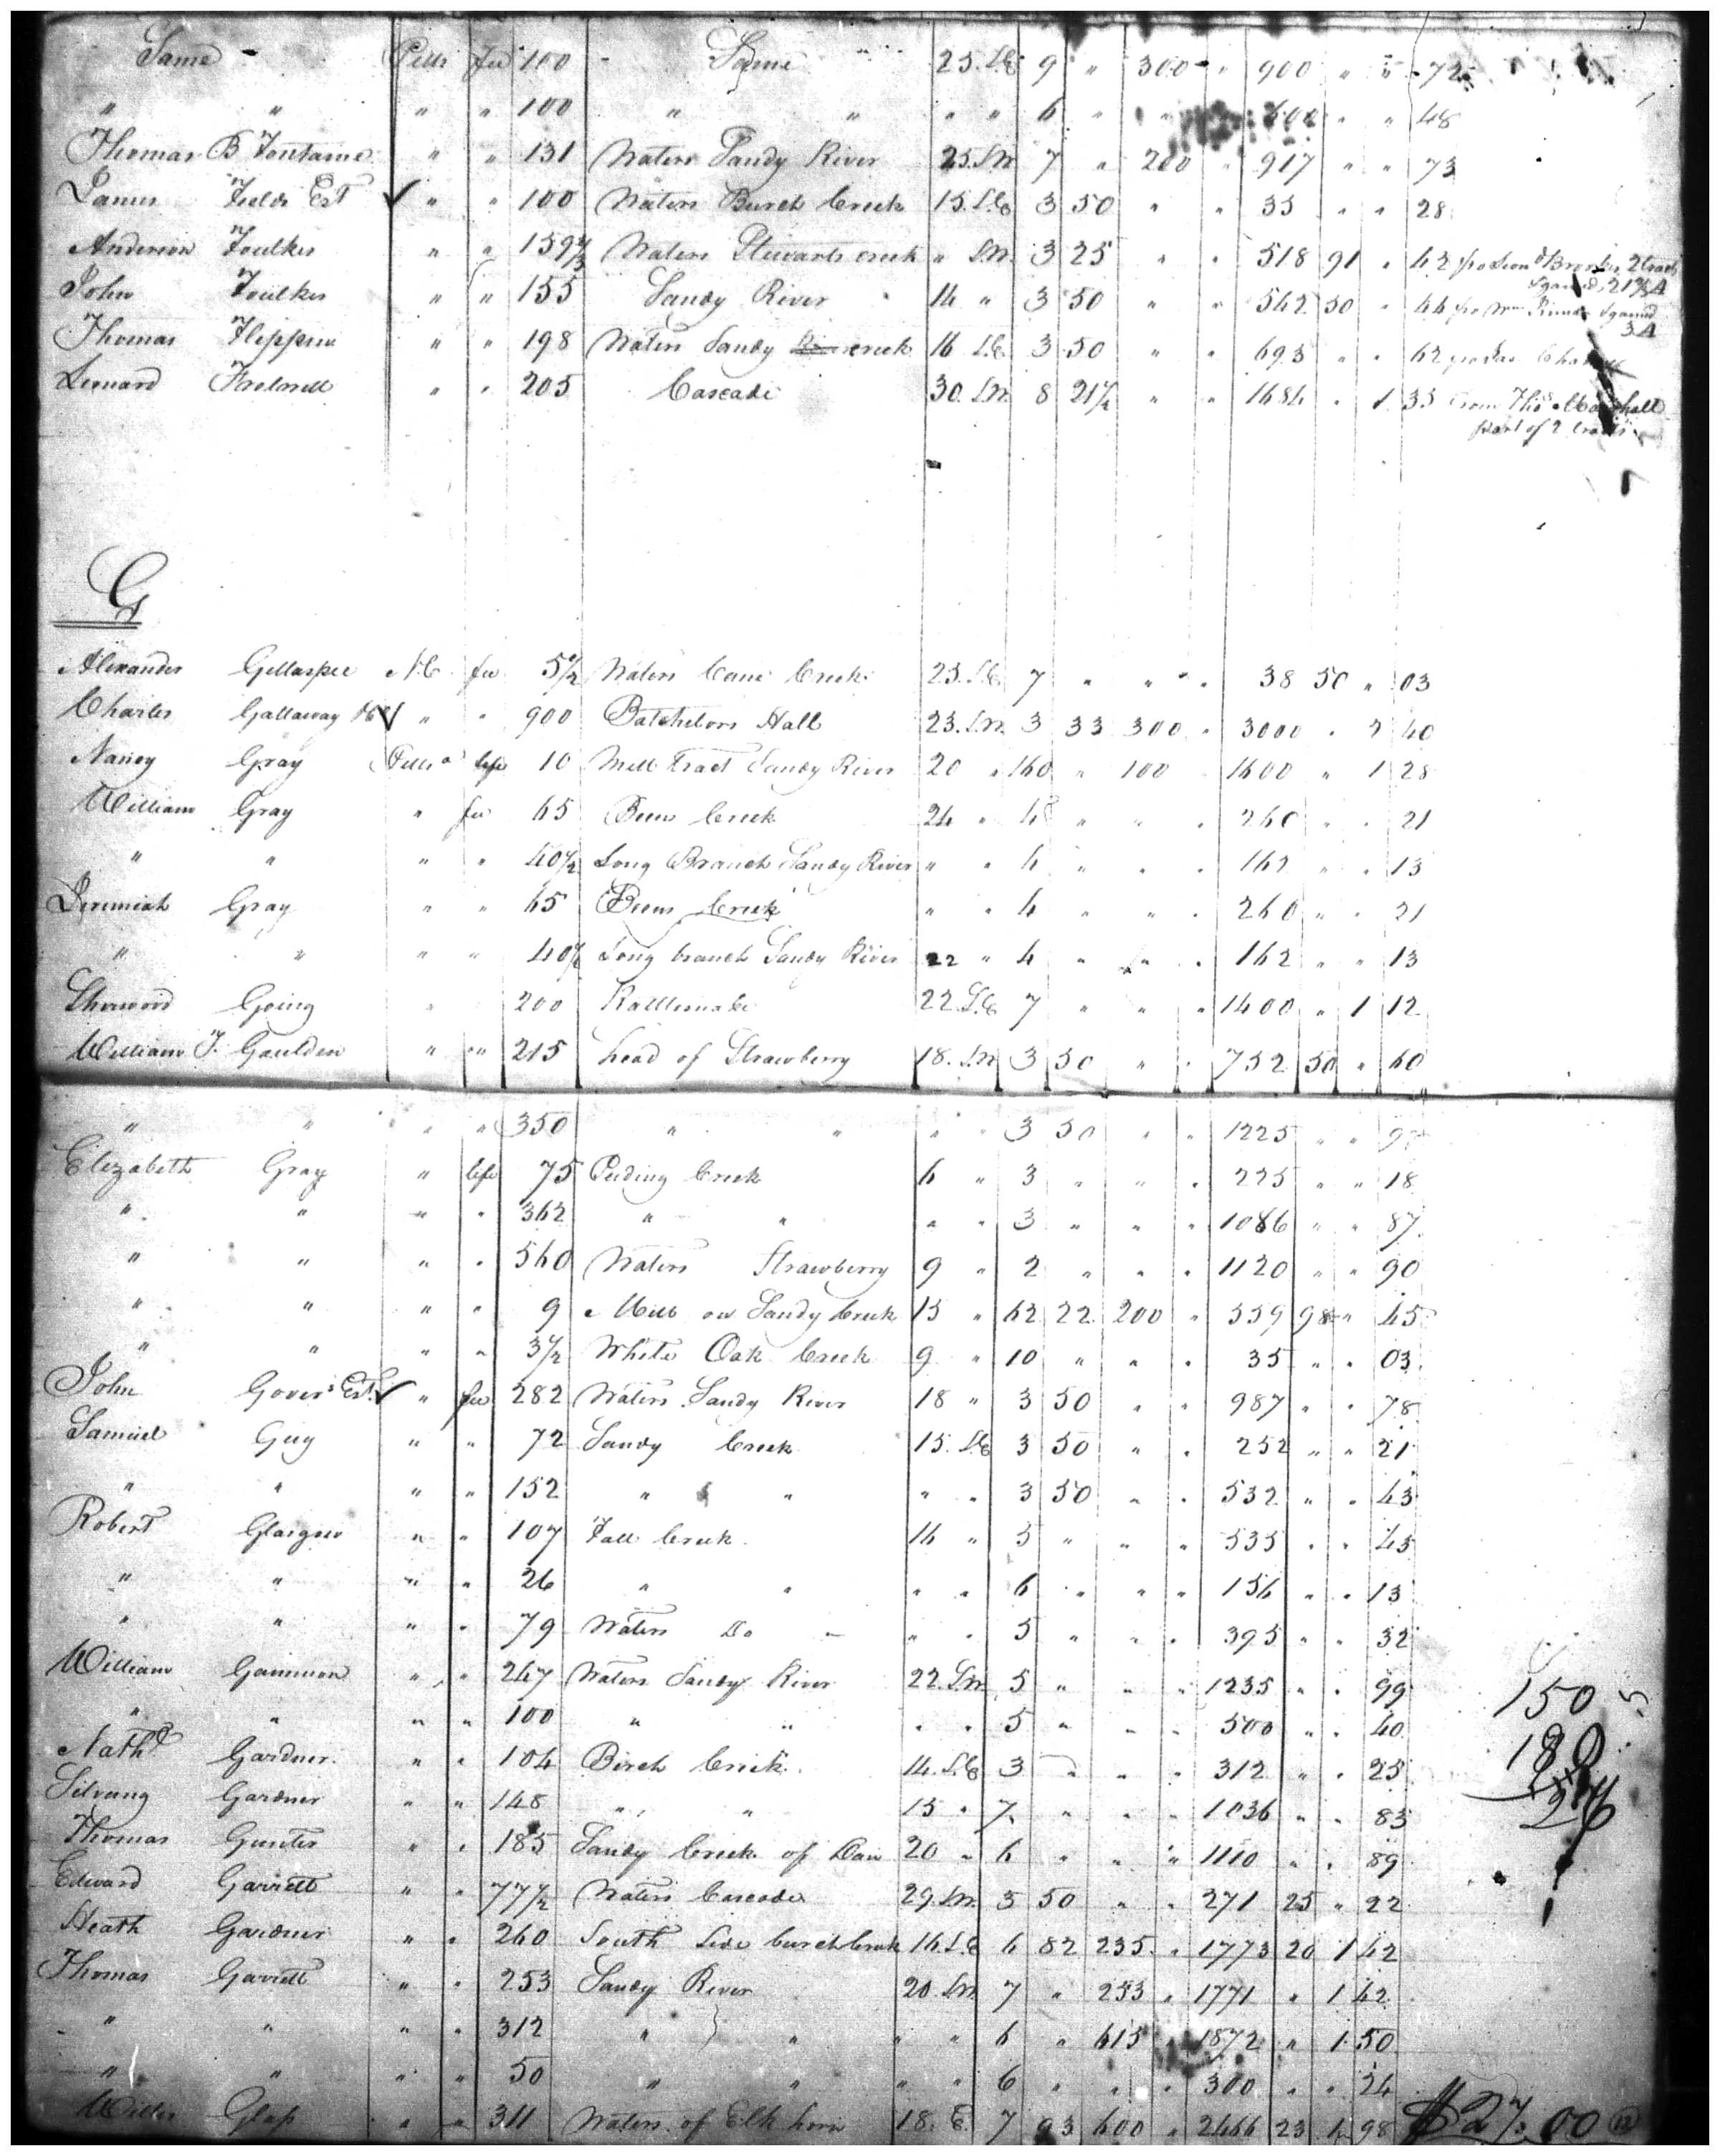 Same - Pitts fee 100 - Same 25. S.E 9 " 300 " 900 " " 72
" " " " 100 " " " " 6 " " 600 " " 48
Thomas B Fontaine " " 131 Waters Sandy River 25. S.W 7 " 200 " 917 " " 73
James Fields Est ✓ " " 100 Waters Burch Creek 15. S.E 3 50 " " 35 " " 28
Anderson Foulkes " " 159 2/3 Waters Stewarts creek " S.W. 3 25 " " 518 91 " 42 2 tracts
John Foulkes " " 155 Sandy River 14 " 3 50 " " 542 50 " 44 fro Wm gained
3 A
Thomas Flippin " " 198 Waters Sandy creek 16 S.E 3 50 " " 693 " " 62
Leonard Fretwell " " 205 Cascade 30. S.W. 8 21 1/2 " " 1684 " 1 35 from Thos Marshall
part of 2 tracts
G
Alexander Gillaspee N.C. fee 5 1/2 Waters Cane Creek 23. S.E 7 " " " 38 50 " 03
Charles Gallaway ✓ " " 900 Batchelors Hall 23. S.W. 3 33 300 " 3000 " 2 40
Nancy Gray Pitts life 10 Mill tract Sandy River 20 " 160 " 100 " 1600 " 1 28
William Gray " fee 65 Beens Creek 24 " 4 " " " 260 " " 21
" " " " 40 1/2 Long Branch Sandy River " " 4 " " " 162 " " 13
Jeremiah Gray " " 65 Beens Creek " " 4 " " " 260 " " 21
" " " " 40 1/2 Long branch Sandy River 22 " 4 " " " 162 " " 13
Sherwood Going " 200 Rattlesnake 22. S.E 7 " " " 1400 " 1 12
William T. Gaulden " " 215 head of Strawberry 18. S.W 3 50 " " 752 50 " 60
" " " " 350 " " " " 3 50 " " 1225 " " 98
Elizabeth Gray " life 75 Puding Creek 6 " 3 " " " 225 " " 18
" " " " 362 " " " " 3 " " " 1086 " " 87
" " " " 560 Waters Strawberry 9 " 2 " " " 1120 " " 90
" " " " 9 Mill on Sandy Creek 15 " 62 22 200 " 559 98 " 45
" " " " 3 1/2 White Oak Creek 9 " 10 " " " 35 " " 03
John Govers Est. ✓ " fee 282 Waters Sandy River 18 " 3 50 " " 987 " " 78
Samuel Guy " " 72 Sandy Creek 15. S.E 3 50 " " 252 " " 21
" " " " 152 " " " " 3 50 " " 532 " " 43
Robert Glasgow " " 107 Fall Creek 16 " 5 " " " 535 " " 43
" " " " 26 " " " " 6 " " " 156 " " 13
" " " " 79 Waters Do " " 5 " " " 395 " " 32
William Gammon " " 247 Waters Sandy River 22. S.W 5 " " " 1235 " " 99
" " " " 100 " " " " 5 " " " 500 " " 40
Nathl Gardner " " 104 Birch Creek 14. S.E 3 " " " 312 " " 25
Silvany Gardner " " 148 " " 15 " 7 " " " 1036 " " 83
Thomas Gunter " " 185 Sandy Creek of Dan 20 " 6 " " " 1110 " " 89
Edward Garrett " " 77 1/2 Waters Cascade 29. S.W. 3 50 " " 271 25 " 22
Heath Gardner " " 260 South Side burch Creek 16. S.E 6 82 235 " 1773 20 1 42
Thomas Garrett " " 253 Sandy River 20. S.W 7 " 253 " 1771 " 1 42
" " " " 312 " " " " 6 " 615 1872 " 1 50
" " " " 50 " " " " 6 " " " 300 " " 24
Willis Glass " " 311 Waters of Elk horn 18. E. 7 93 600 " 2466 23 1 98
150
180
$27.00
12